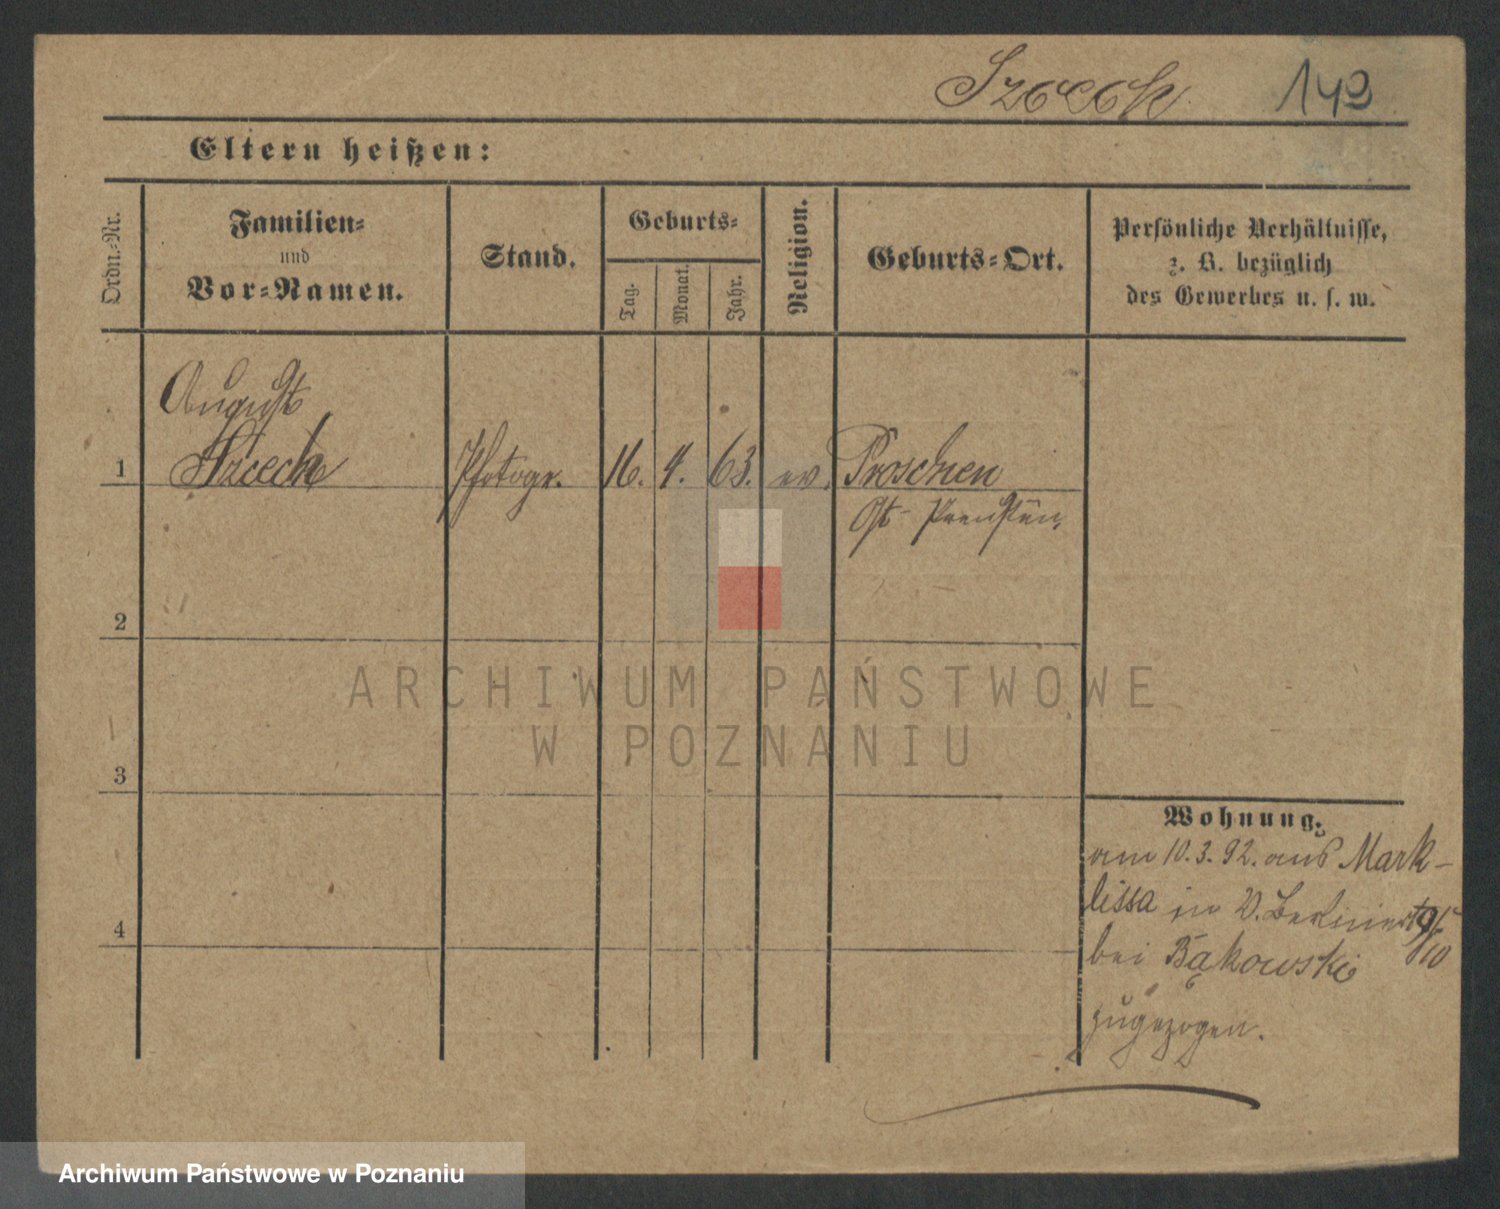 Szecek 149
Eltern heißen:
Ordn.-Nr.
Familien-
und
Vor-Namen.
Stand.
Geburts-
Tag.
Monat.
Jahr.
Religion.
Geburts-Ort.
Persönliche Verhältnisse,
z. B. bezüglich
des Gewerbes u. s. w.
August
1 Photogr. 16. 4. 63. ev. Proschen
Ost-Preußen,
2
3
4
Wohnung.
am 10.3.92. aus Mark-
lissa in
bei Bąkowski
zugezogen.
ARCHIWUM PAŃSTWOWE
W POZNANIU
Archiwum Państwowe w Poznaniu